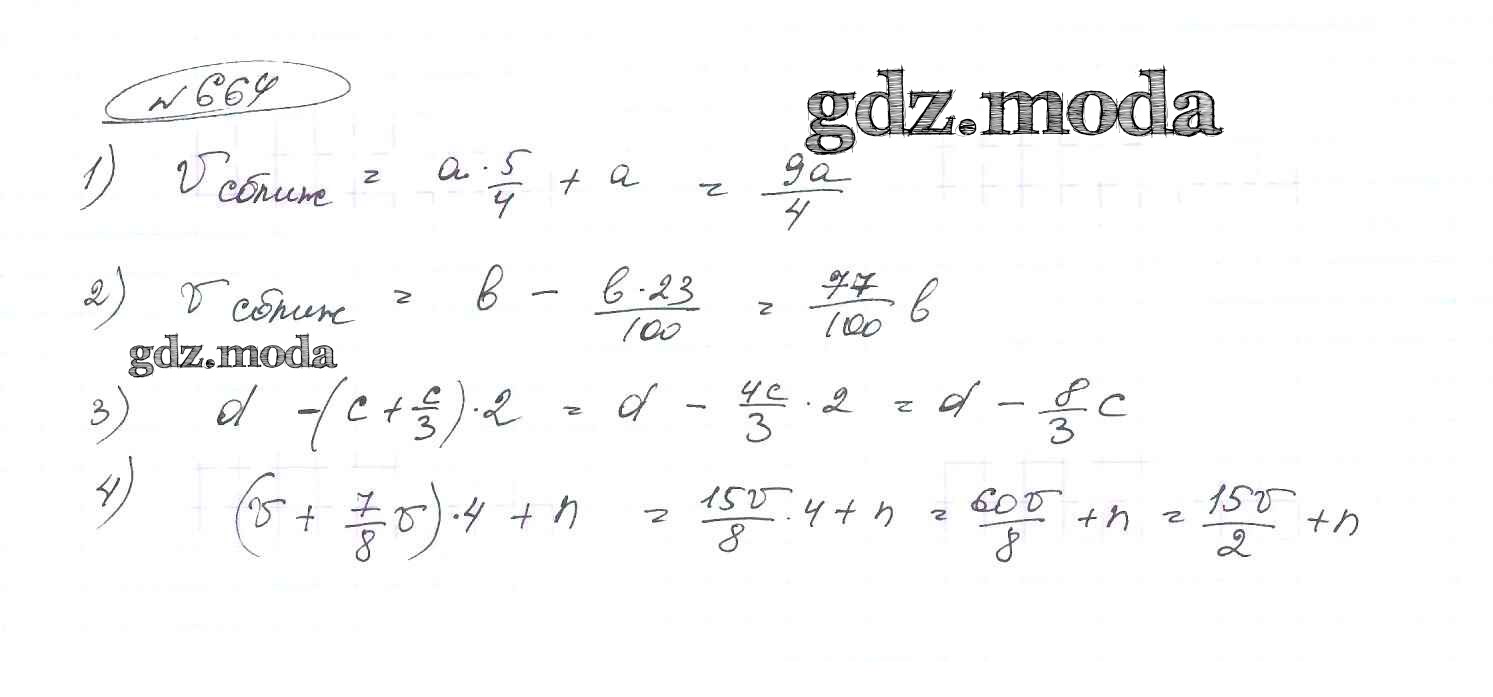 № 664
gdz.moda
1) v сближ = a · 5/4 + a = 9a/4
2) v сближ = b − b·23/100 = 77/100 b
gdz.moda
3) d − (c + c/3) · 2 = d − 4c/3 · 2 = d − 8/3 c
4) (v + 7/8 v) · 4 + n = 15v/8 · 4 + n = 60v/8 + n = 15v/2 + n